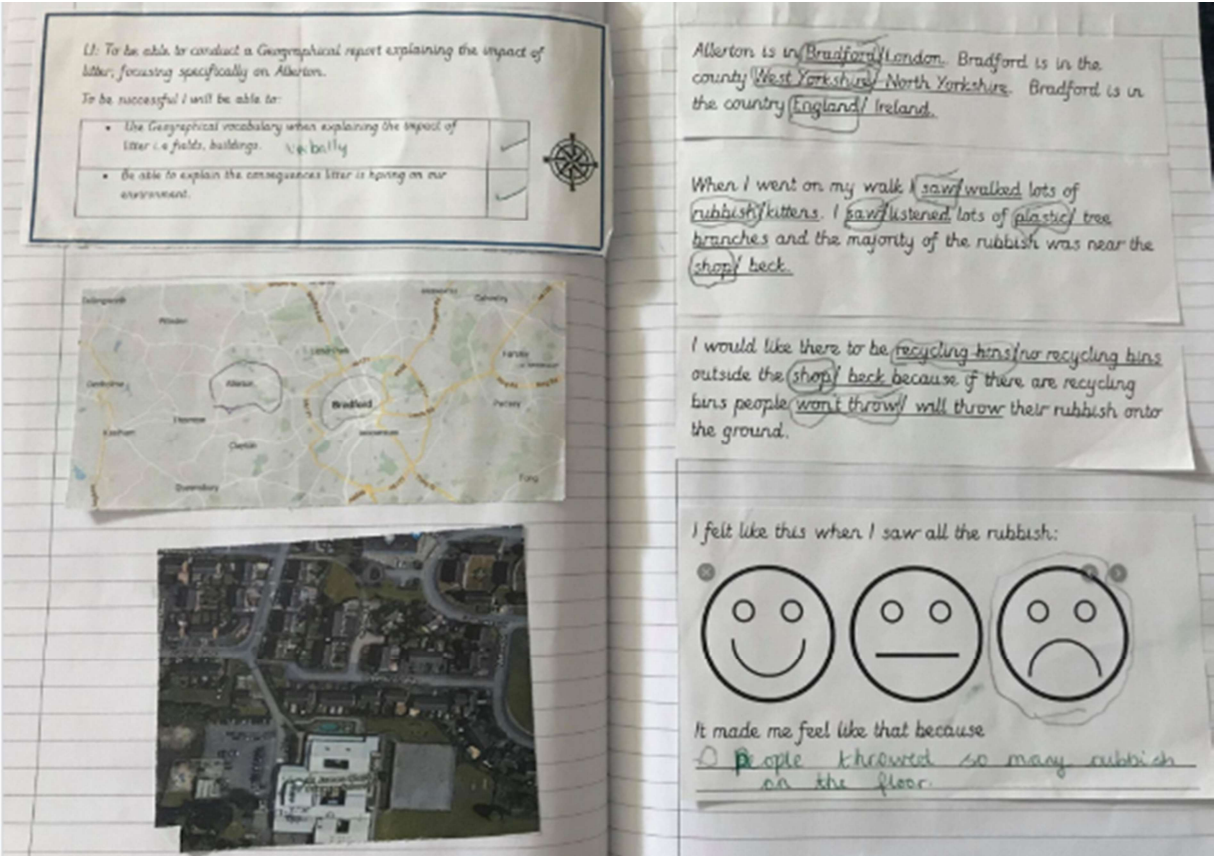 LI: To be able to conduct a Geographical report explaining the impact of
litter, focusing specifically on Allerton.
To be successful I will be able to:
Use Geographical vocabulary when explaining the impact of
litter i.e fields, buildings. verbally
Be able to explain the consequences litter is having on our
environment.
Denholme
Allerton
Bradford
Thornton
Clayton
Queensbury
Pudsey
Farsley
Calverley
Allerton is in Bradford/London. Bradford is in the
county West Yorkshire/ North Yorkshire. Bradford is in
the country England/ Ireland.
When I went on my walk I saw/walked lots of
rubbish/kittens. I saw/listened lots of plastic/ tree
branches and the majority of the rubbish was near the
shop/ beck.
I would like there to be recycling bins/no recycling bins
outside the shop/ beck because if there are recycling
bins people won't throw/ will throw their rubbish onto
the ground.
I felt like this when I saw all the rubbish:
It made me feel like that because
People throwed so many rubbish
on the floor.